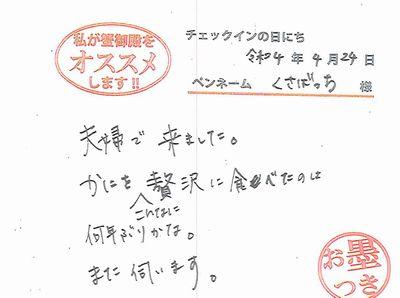 私が蟹御殿を
オススメ
します!!
チェックインの日にち
令和4年4月24日
ペンネーム くさばっち 様
夫婦で来ました。
かにを贅沢に食べたのは
こんなに
何年ぶりかな。
また伺います。
お墨
つき